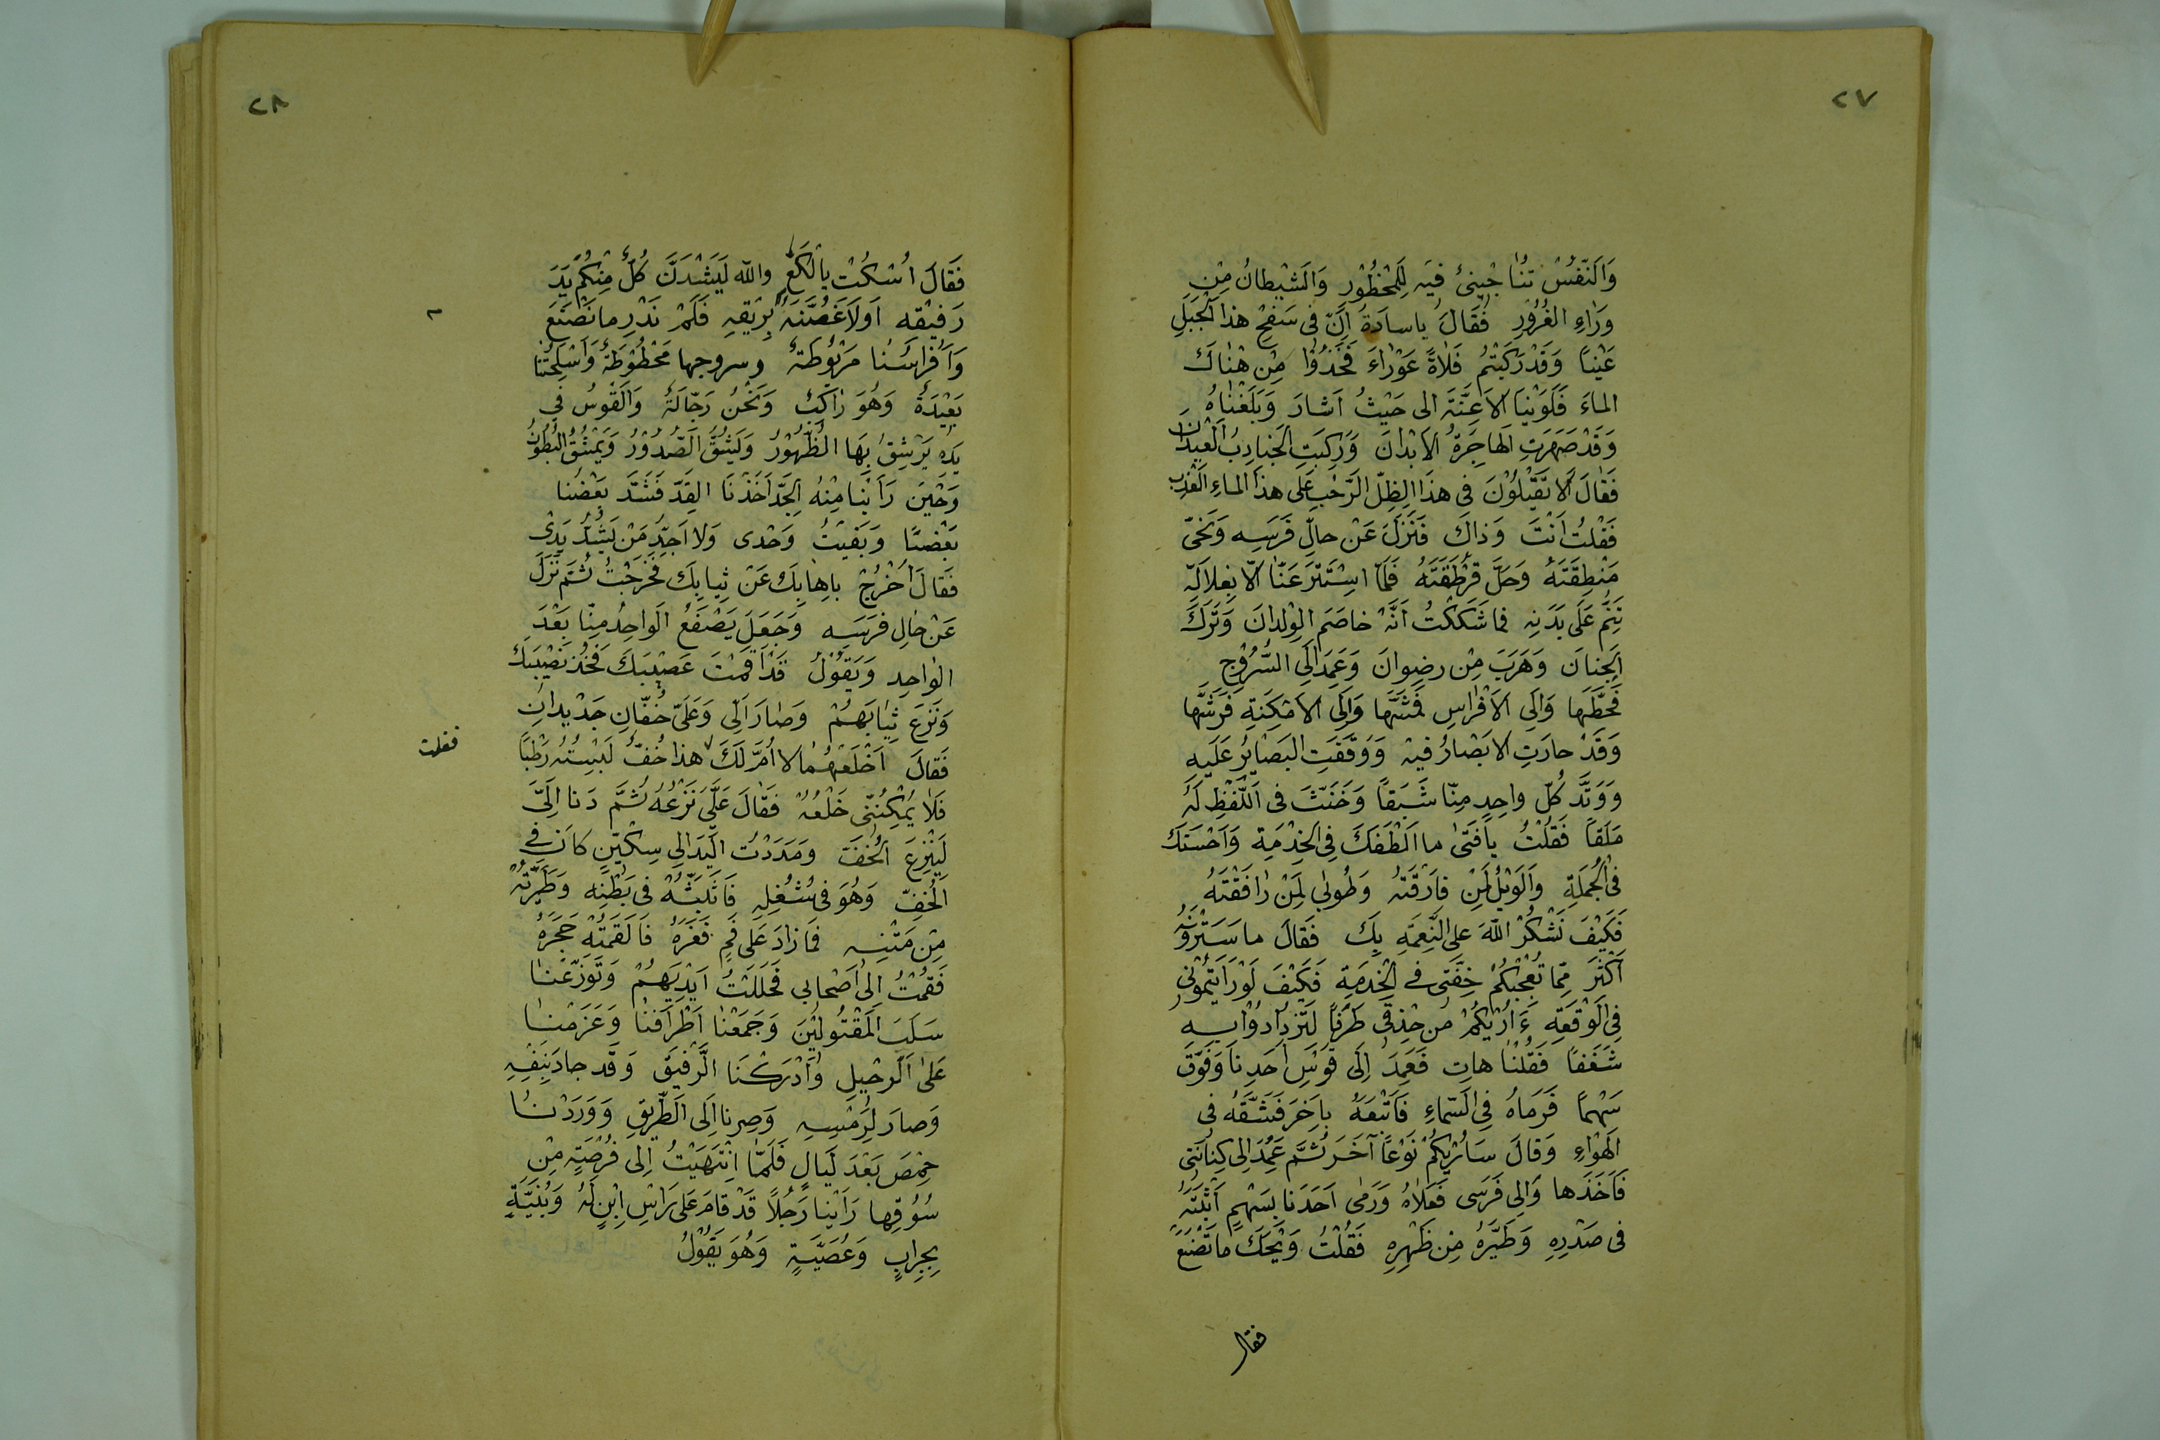 ٢٧
وَالنَّفْسُ تُنَاجِينِي فِيهِ لِلْمَحْظُورِ وَالشَّيْطَانُ مِنْ
وَرَاءِ الغُرُورِ فَقَالَ يَا سَادَةُ إِنَّ فِي سَفْحِ هذا الْجَبَلِ
عَيْنًا وَقَدْ رَكِبْتُمْ فَلَاةً عَوْرَاءَ فَخُذُوا مِنْ هُنَاكَ
الماءَ فَلَوَيْنَا الأَعِنَّةَ الى حَيْثُ أَشَارَ وَبَلَغْنَاهُ
وَقَدْ صَهَرَتِ الهَاجِرَةُ الأَبْدَانَ وَرَكِبَتِ الجَنَادِبُ الْعِيدَانَ
فَقَالَ أَلَا تَقِيلُونَ فِي هذَا الظِّلِّ الرَّحْبِ عَلَى هذا الماءِ العَذْبِ
فَقُلْتُ أَنْتَ وَذَاكَ فَنَزَلَ عَنْ حَالِ فَرَسِهِ وَنَحَّى
مِنْطَقَتَهُ وَحَلَّ قُرْطَقَتَهُ فَمَا اسْتَتَرَ عَنَّا إِلَّا بِغِلَالَةٍ
تَنِمُّ عَلَى بَدَنِهِ فَمَا شَكَكْتُ أَنَّهُ خَاصَمَ الوِلْدَانَ وَتَرَكَ
الجِنَانَ وَهَرَبَ مِنْ رِضْوَانَ وَعَمَدَ إِلَى السُّرُوجِ
فَحَطَّهَا وَإِلَى الأَفْرَاسِ فَحَشَّهَا وَإِلَى الأَمْكِنَةِ فَرَشَّهَا
وَقَدْ حَارَتِ الأَبْصَارُ فِيهِ وَوَقَفَتِ البَصَائِرُ عَلَيْهِ
وَوَتَّدَ كُلُّ وَاحِدٍ مِنَّا شَبَقًا وَخَنَّثَ فِي اللَّفْظِ لَهُ
مَلَقًا فَقُلْتُ يَا فَتَى ما أَلْطَفَكَ فِي الخِدْمَةِ وَأَحْسَنَكَ
فِي الْجُمْلَةِ وَالْوَيْلُ لِمَنْ فَارَقْتَهُ وَطُوبَى لِمَنْ رَافَقْتَهُ
فَكَيْفَ نَشْكُرُ اللهَ عَلَى النِّعْمَةِ بِكَ فَقَالَ ما سَتَرَوْنَهُ
أَكْثَرُ مِمَّا تُعْجِبُكُمْ خِفَّتِي فِي الْخِدْمَةِ فَكَيْفَ لَوْ رَأَيْتُمُونِي
فِي الْوَقْعَةِ ءَأُرِيكُمْ مِنْ حِذْقِي طَرَفًا لِتَزْدَادُوا بِي
شَغَفًا فَقُلْنَا هَاتِ فَعَمَدَ إِلَى قَوْسِ أَحَدِنَا وَفَوَّقَ
سَهْمًا فَرَمَاهُ فِي السَّمَاءِ فَأَتْبَعَهُ بِآخَرَ فَشَقَّهُ فِي
الهَوَاءِ وَقَالَ سَأُرِيكُمْ نَوْعًا آخَرَ ثُمَّ عَمَدَ الى كِنَانَتِي
فَأَخَذَهَا وَإِلَى فَرَسِي فَعَلَاهُ وَرَمَى أَحَدَنَا بِسَهْمٍ أَثْبَتَهُ
فِي صَدْرِهِ وَطَيَّرَهُ مِنْ ظَهْرِهِ فَقُلْتُ وَيْحَكَ مَا تَصْنَعُ
فقال
٢٨
فَقَالَ اسْكُتْ يا لُكَعُ والله لَيَشُدَّنَّ كُلٌّ مِنْكُمْ يَدَ
رَفِيقِهِ أَوْ لَأُغِصَّنَّهُ بِرِيقِهِ فَلَمْ نَدْرِ مَا نَصْنَعُ
وَأَفْرَاسُنَا مَرْبُوطَةٌ وسروجها مَحْطُوطَةٌ وَأَسْلِحَتُنَا
بَعِيدَةٌ وَهُوَ رَاكِبٌ وَنَحْنُ رَجَّالَةٌ وَالقَوْسُ فِي
يَدِهِ يَرْشُقُ بِهَا الظُّهُورَ وَيَشُقُّ الصُّدُورَ وَيَمْشُقُ البُطُونَ
وَحِينَ رَأَيْنَا مِنْهُ الجِدَّ أَخَذْنَا القِدَّ فَشَدَّ بَعْضُنَا
بَعْضًا وَبَقِيتُ وَحْدِي وَلَا أَجِدُ مَنْ يَشُدُّ يَدِي
فَقَالَ اخْرُجْ بِإِهَابِكَ عَنْ ثِيَابِكَ فَخَرَجْتُ ثُمَّ نَزَلَ
عَنْ حَالِ فَرَسِهِ وَجَعَلَ يَصْفَعُ الوَاحِدَ مِنَّا بَعْدَ
الوَاحِدِ وَيَقُولُ قَدْ أَقَمْتَ عَصِيبَكَ فَخُذْ نَصِيبَكَ
وَنَزَعَ ثِيَابَهُمْ وَصَارَ إِلَيَّ وَعَلَيَّ خُفَّانِ جَدِيدَانِ
فَقَالَ اخْلَعْهُمَا لَا أُمَّ لَكَ هذا خُفٌّ لَبِسْتُهُ رَطْبًا
فقلت
فَلَا يُمْكِنُنِي خَلْعُهُ فَقَالَ عَلَيَّ نَزْعُهُ ثُمَّ دَنَا إِلَيَّ
لِيَنْزِعَ الْخُفَّ وَمَدَدْتُ الْيَدَ الى سِكِّينٍ كَانَ فِي
الْخُفِّ وَهُوَ فِي شُغْلِهِ فَأَثْبَتُّهُ فِي بَطْنِهِ وَطَيَّرْتُهُ
مِنْ مَتْنِهِ فَمَا زَادَ عَلَى فَمٍ فَغَرَهُ فَأَلْقَمْتُهُ حَجَرَهُ
فَقُمْتُ إِلَى أَصْحَابِي فَحَلَلْتُ أَيْدِيَهُمْ وَتَوَزَّعْنَا
سَلَبَ الْمَقْتُولِينَ وَجَمَعْنَا أَطْرَافَنَا وَعَزَمْنَا
عَلَى الرَّحِيلِ وَأَدْرَكْنَا الرَّفِيقَ وَقَدْ جَادَ بِنَفْسِهِ
وَصَارَ لِرَمْسِهِ وَصِرْنَا إِلَى الطَّرِيقِ وَوَرَدْنَا
حِمْصَ بَعْدَ لَيَالٍ فَلَمَّا انْتَهَيْتُ إِلَى فُرْضَةٍ مِنْ
سُوقِهَا رَأَيْنَا رَجُلًا قَدْ قَامَ عَلَى رَأْسِ ابْنٍ لَهُ وَبُنَيَّةٍ
بِجِرَابٍ وَعُصَيَّةٍ وَهُوَ يَقُولُ